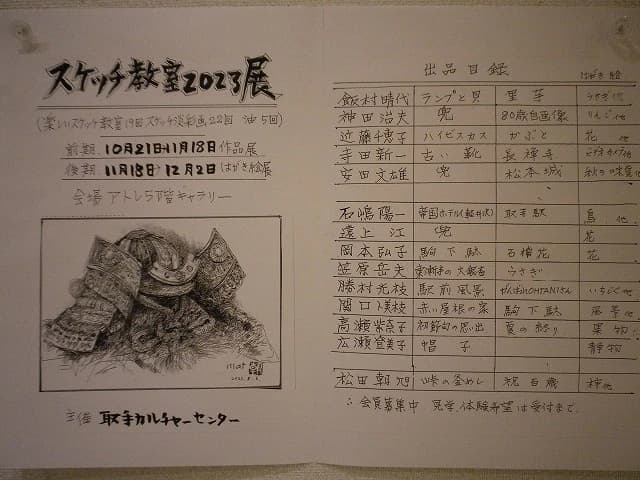 スケッチ教室2023展
(楽しいスケッチ教室19回 スケッチ淡彩画22回 油5回)
前期 10月21日→11月18日 作品展
後期 11月18日→12月2日 はがき絵展
会場 アトレ5階ギャラリー
mat
主催 取手カルチャーセンター
出品目録 はがき絵
飯村時代 ランプと貝 里芋 うさぎ 他
神田治夫 兜 80歳自画像 りんご 他
近藤千恵子 ハイビスカス かぶと 花 他
寺田新一 古い靴 長禅寺
安田文雄 兜 松本城 秋の味覚 他
石嶋陽一 帝国ホテル(軽井沢) 取手駅 鳥 他
遠上江 兜 花
岡本弘子 駒下駄 石楠花 花
笠原岳夫 うさぎ
勝村光枝 駅前風景 がんばれOHTANIさん いちじく 他
関口美枝 赤い屋根の家 駒下駄 風景 他
高瀬紫壺子 初節句の思い出 夏の終り 果物
広瀬登美子 帽子 静物
松田朝旭 峠の釜めし 祝百歳 柿 他
∴会員募集中 見学、体験希望は受付まで